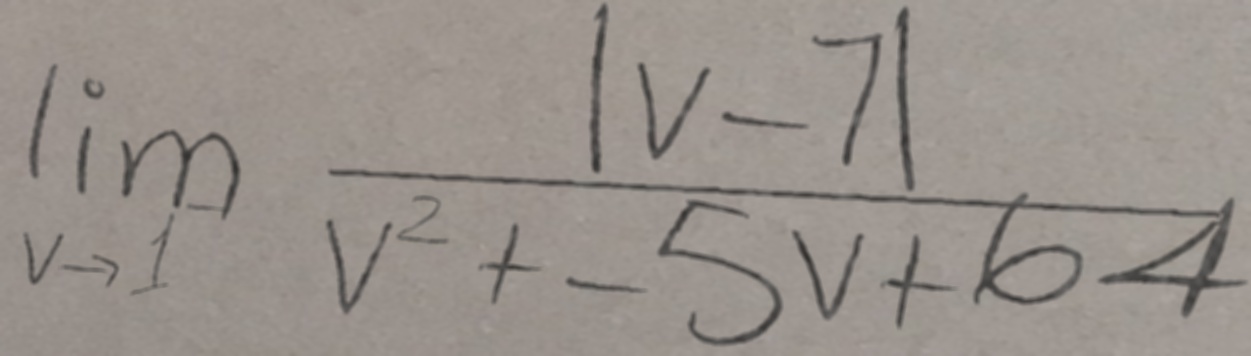 \lim_{v \to 1} \frac{|v-7|}{v^2+-5v+64}